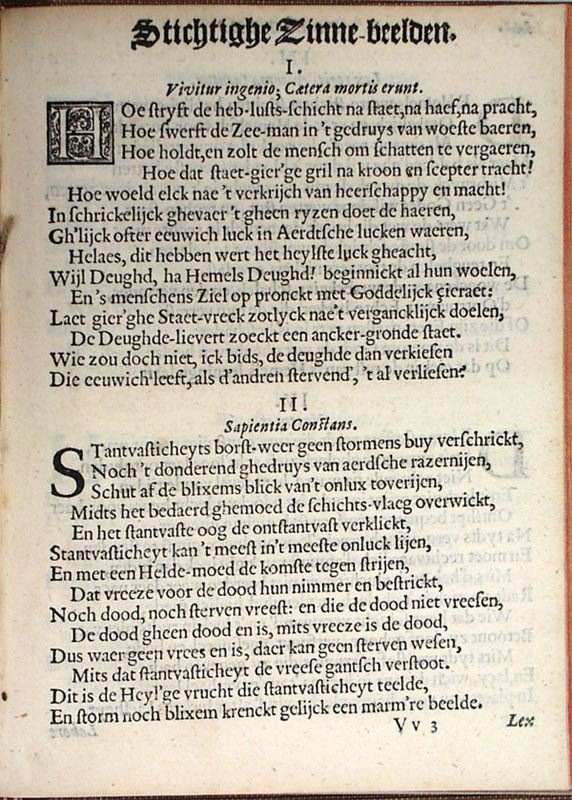 Stichtighe Zinne-beelden.
I.
Vivitur ingenio; Cætera mortis erunt.
HOe stryft de heb-lusts-schicht na staet, na haef, na pracht,
Hoe swerft de Zee-man in 't gedruys van woeste baeren,
Hoe holdt, en zolt de mensch om schatten te vergaeren,
Hoe dat staet-gier'ge gril na kroon en scepter tracht!
Hoe woeld elck nae 't verkrijch van heerschappy en macht!
In schrickelijck ghevaer 't gheen ryzen doet de haeren,
Gh'lijck ofter eeuwich luck in Aerdtsche lucken waeren,
Helaes, dit hebben wert het heylste luck gheacht,
Wijl Deughd, ha Hemels Deughd! beginnickt al hun woelen,
En 's menschens Ziel op pronckt met Goddelijck çieraet:
Laet gier'ghe Staet-vreck zotlyck nae't vergancklijck doelen,
De Deughde-lievert zoeckt een ancker-gronde staet.
Wie zou doch niet, ick bids, de deughde dan verkiesen
Die eeuwich leeft, als d'andren stervend', 't al verliesen?
II.
Sapientia Constans.
STantvasticheyts borst-weer geen stormens buy verschrickt,
Noch 't donderend ghedruys van aerdsche razernijen,
Schut af de blixems blick van't onlux toverijen,
Midts het bedaerd ghemoed de schichts-vlaeg overwickt,
En het stantvaste oog de ontstantvast verklickt,
Stantvasticheyt kan 't meest in't meeste onluck lijen,
En met een Helde-moed de komste tegen strijen,
Dat vreeze voor de dood hun nimmer en bestrickt,
Noch dood, noch sterven vreest: en die de dood niet vreesen,
De dood gheen dood en is, mits vreeze is de dood,
Dus waer geen vrees en is, daer kan geen sterven wesen,
Mits dat stantvasticheyt de vreese gantsch verstoot.
Dit is de Heyl'ge vrucht die stantvasticheyt teelde,
En storm noch blixem krenckt gelijck een marm're beelde.
V v 3 Lex